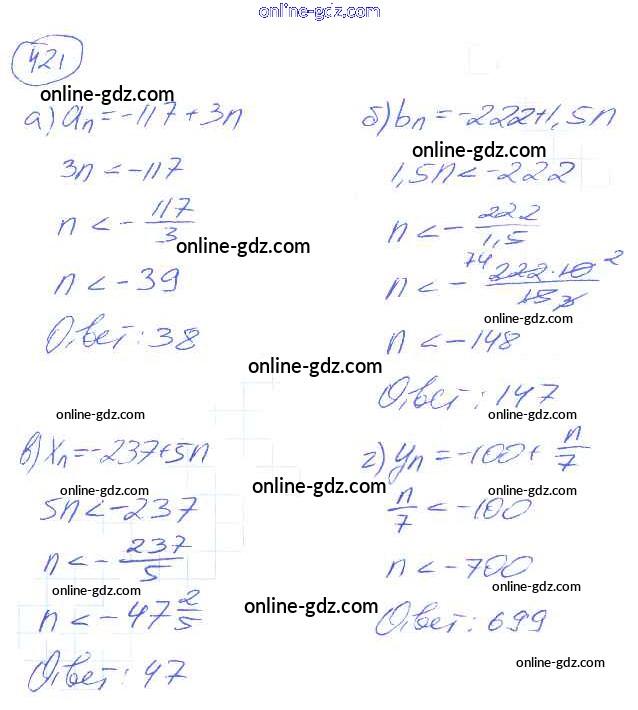 online-gdz.com
421
online-gdz.com
а) aₙ = -117 + 3n
3n < -117
n < - 117/3
online-gdz.com
n < -39
Ответ: 38
online-gdz.com
online-gdz.com
б) bₙ = -222 + 1,5n
online-gdz.com
1,5n < -222
n < - 222/1,5
n < - 74 222·10 2 / 15 3
online-gdz.com
n < -148
Ответ: 147
online-gdz.com
online-gdz.com
в) xₙ = -237 + 5n
online-gdz.com
5n < -237
n < - 237/5
online-gdz.com
n < -47 2/5
Ответ: 47
online-gdz.com
г) yₙ = -100 + n/7
online-gdz.com
online-gdz.com
n/7 < -100
n < -700
online-gdz.com
online-gdz.com
Ответ: 699
online-gdz.com